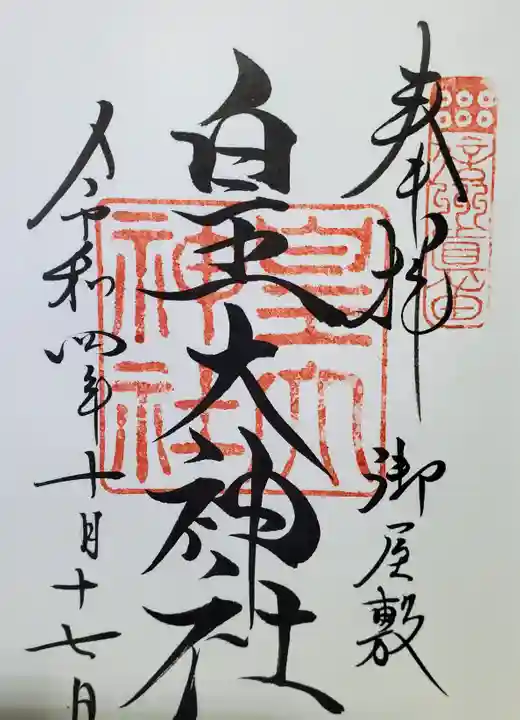 奉拝
御屋敷
皇大神社
令和四年十月十七日
皇大
神社
信州真田